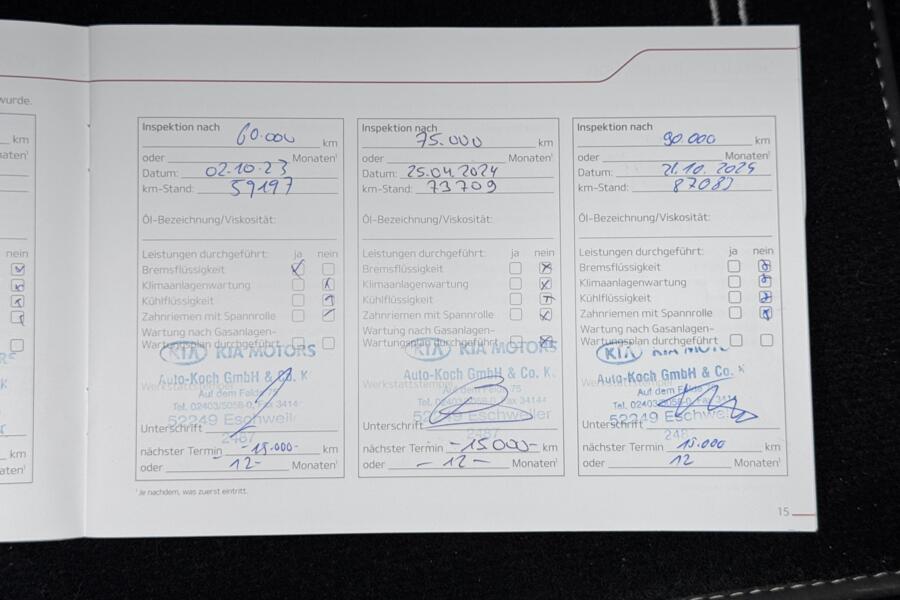 wurde.
km
nein
km
Inspektion nach 60.000 km
oder Monaten¹
Datum: 02.10.23
km-Stand: 59197
Öl-Bezeichnung/Viskosität:
Leistungen durchgeführt: ja nein
Bremsflüssigkeit
Klimaanlagenwartung
Kühlflüssigkeit
Zahnriemen mit Spannrolle
Wartung nach Gasanlagen-
Wartungsplan durchgeführt
KIA KIA MOTORS
Auto-Koch GmbH & Co. K
Auf dem Felde 75
Tel. 02403/5058-0, Fax 3414
52249 Eschweiler
Unterschrift
2487
nächster Termin -15.000- km
oder 12- Monaten¹
Inspektion nach 75.000 km
oder Monaten¹
Datum: 25.04.2024
km-Stand: 73709
Öl-Bezeichnung/Viskosität:
Leistungen durchgeführt: ja nein
Bremsflüssigkeit
Klimaanlagenwartung
Kühlflüssigkeit
Zahnriemen mit Spannrolle
Wartung nach Gasanlagen-
Wartungsplan durchgeführt
KIA KIA MOTORS
Auto-Koch GmbH & Co. K
Werkstattstempel
Auf dem Felde 75
Tel. 02403/5058-0, Fax 34144
52249 Eschweiler
Unterschrift
2487
nächster Termin -15000- km
oder -12- Monaten¹
Inspektion nach 90.000 km
oder Monaten¹
Datum: 21.10.2024
km-Stand:
Öl-Bezeichnung/Viskosität:
Leistungen durchgeführt: ja nein
Bremsflüssigkeit
Klimaanlagenwartung
Kühlflüssigkeit
Zahnriemen mit Spannrolle
Wartung nach Gasanlagen-
Wartungsplan durchgeführt
KIA
Auto-Koch GmbH & Co. K
Auf dem Felde
Tel. 02403/5058-0, Fax 341
52249 Eschweiler
Unterschrift
248
nächster Termin 15.000 km
oder 12 Monaten¹
¹ Je nachdem, was zuerst eintritt.
15